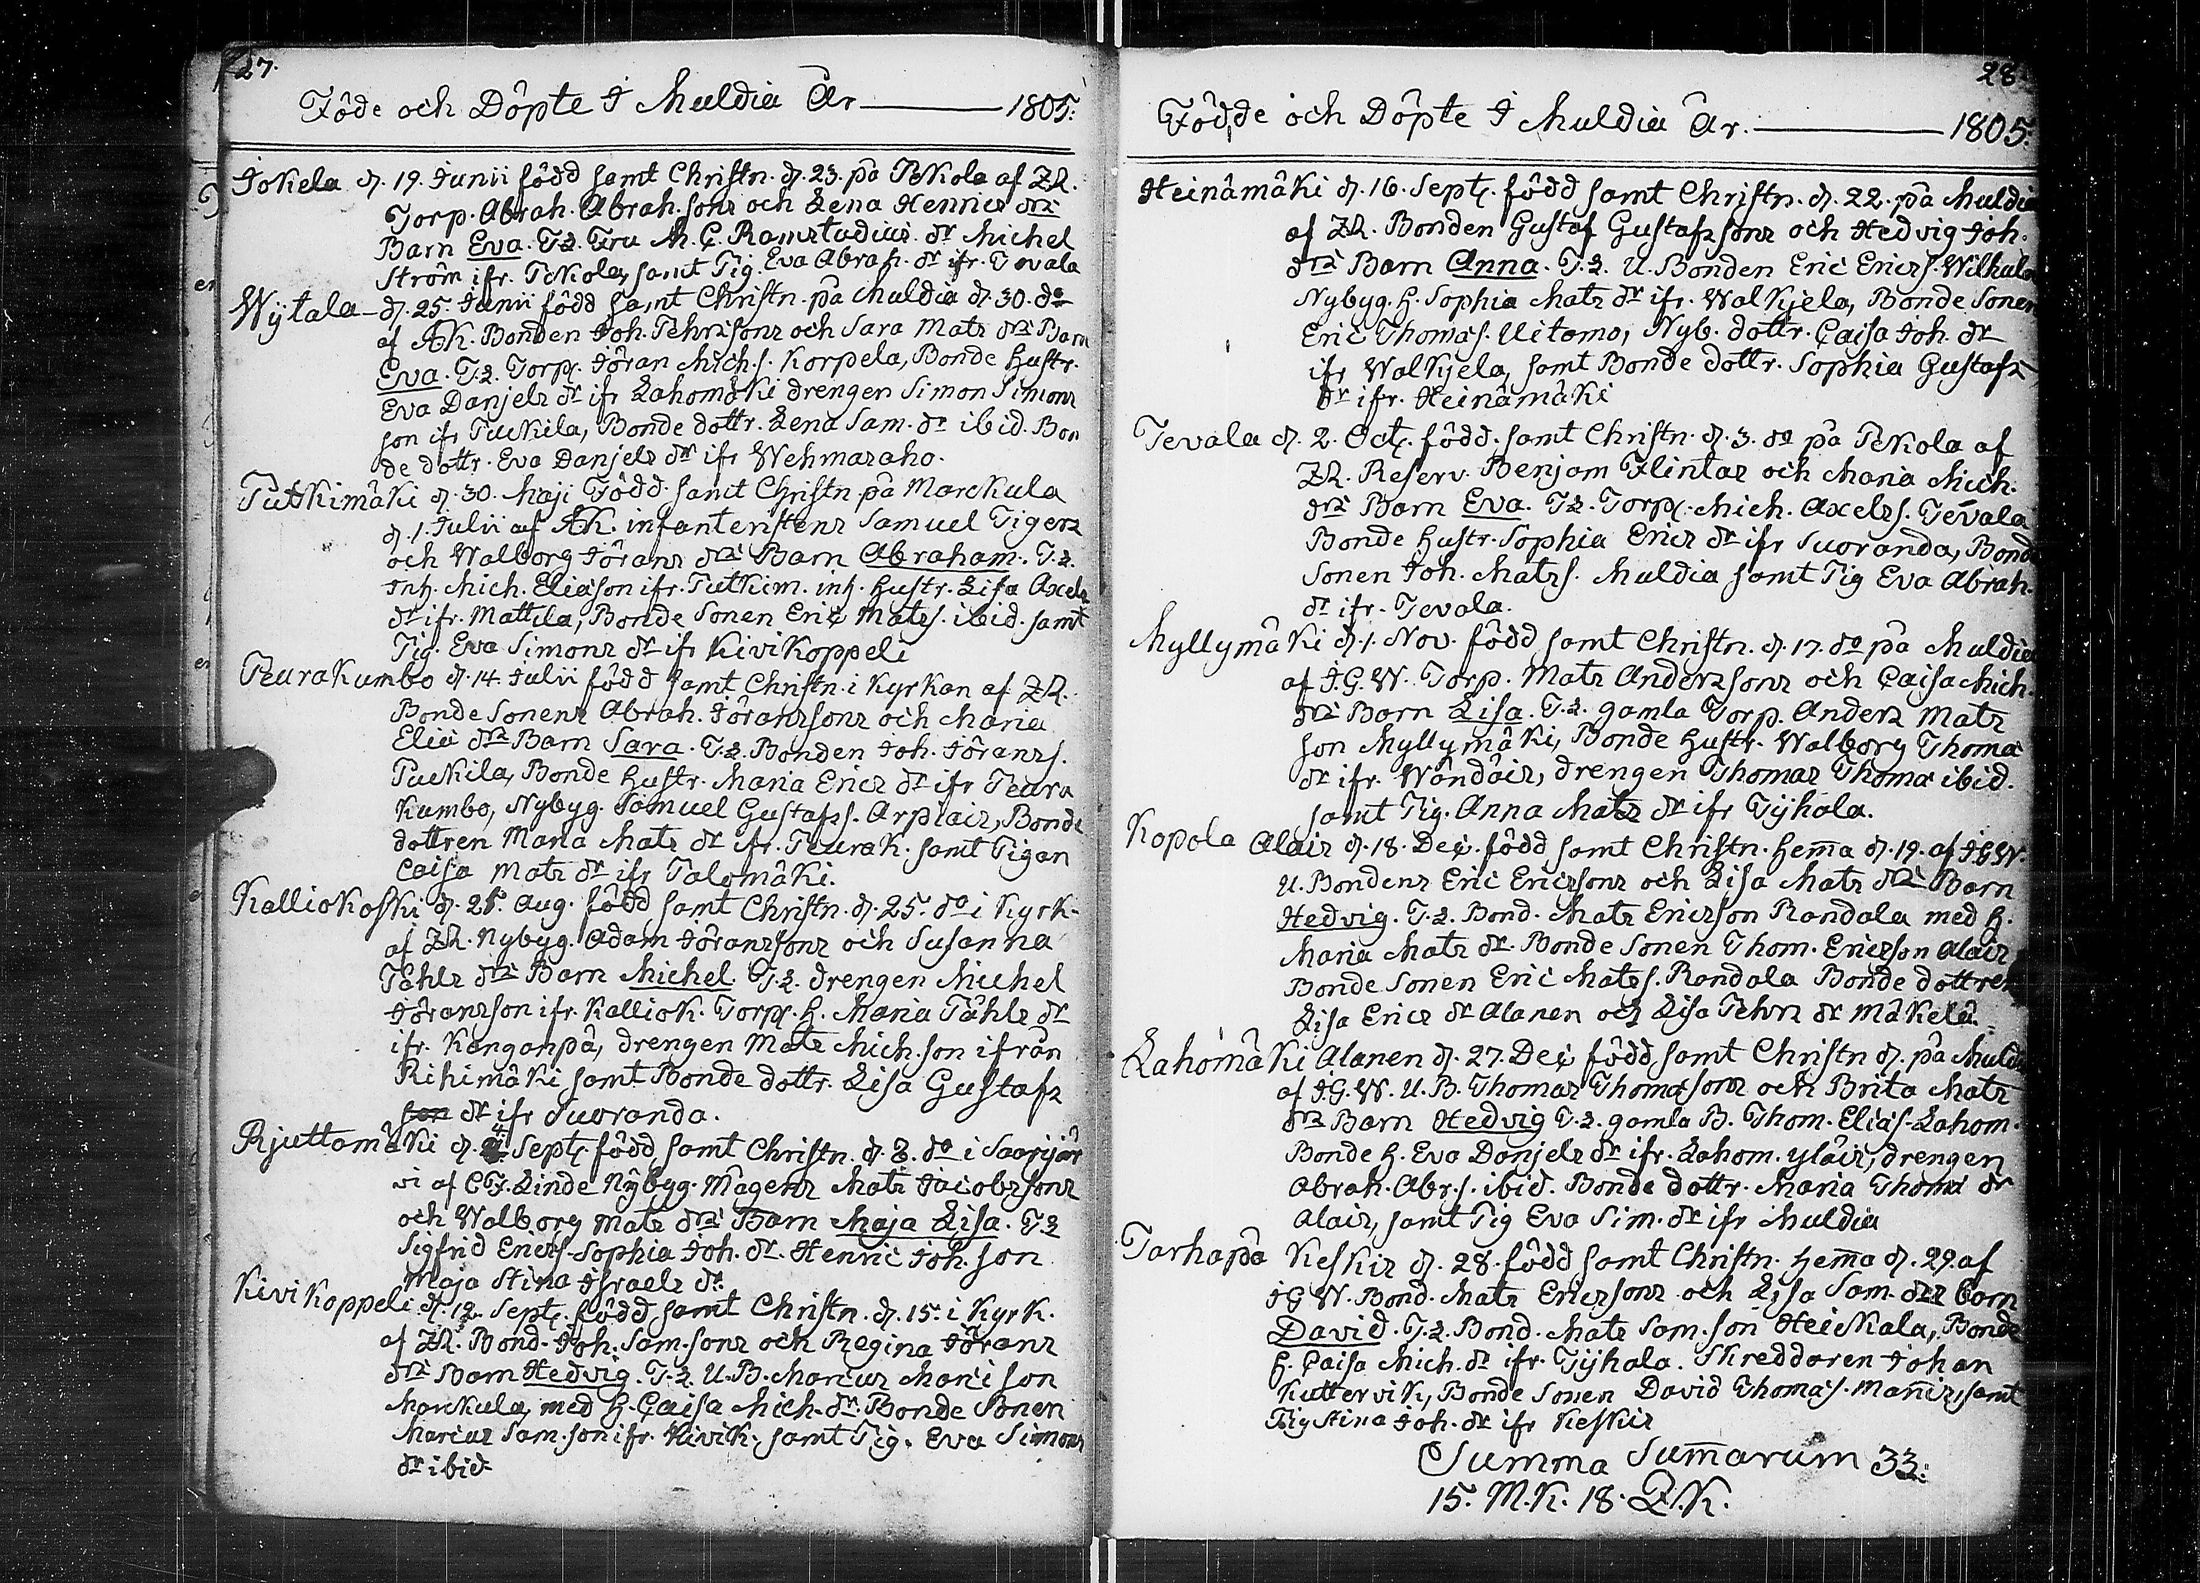 27.
Föde och Döpte I Muldia År 1805.
Jokela d. 19. Junii född samt Christn. d. 23. på Pekola af ZR.
Torp. Abrah. Abrah.sons och Lena Henrics drs
Barn Eva. T.2. Fru M. C. Ramstadius. dr Michel
Ström ifr. Pekola, samt Pig. Eva Abrah. dr ifr. Tevala
Wijtala d. 25. Junii född samt Christn. på Muldia d. 30. do
af AK. Bonden Joh. Pehrssons och Sara Mats drs Barn
Eva. T.2. Torp. Jöran Mich.s. Korpela, Bonde Hustr.
Eva Danjels dr ifr Lahomäki drengen Simon Simons
son ifr Puckila, Bonde dottr. Lena Sam. dr ibid. Bon
de dottr. Eva Danjels dr ifr Wehmasaho.
Putkimäki d. 30. Maji Född samt Christn på Marckula
d. 1. Julii af A.K. infanteristens Samuel Tigers
och Walborg Jörans drs Barn Abraham. T.2.
Inh. Mich. Eliason ifr. Putkim. inh. Hustr. Lisa Axels
dr ifr. Mattila, Bonde Sonen Eric Matss. ibid. samt
Pig. Eva Simons dr ifr Kivikoppeli
Peurakumbo d. 14. Julii född samt Christn. i Kyrkan af ZR.
Bonde Sonens Abrah. Jöranssons och Maria
Eliæ drs Barn Sara. T.2. Bonden Joh. Jöranss.
Puckila, Bonde Hustr. Maria Erics dr ifr Peura
kumbo, Nybyg. Samuel Gustafss. Arplais, Bonde
dottren Maria Mats dr ifr. Peurak. samt Pigan
Caisa Mats dr ifr Talomäki.
Kalliokoski d. 21. Aug. född samt Christn. d. 25. do i Kyrk.
af ZR. Nybyg. Adam Jöranssons och Susanna
Påhls drs Barn Michel. T.2. drengen Michel
Jöransson ifr. Kalliok. Torp. H. Maria Påhls dr
ifr. Kanganpä, drengen Mats Mich.son ifrån
Rihimäki samt Bonde dottr. Lisa Gustafs
son dr ifr Suoranda.
Rjuttomäki d. 4. Sept. född samt Christn. d. 8. do i Saarijär
vi af C.J. Linde Nÿbyg. Mågens Mats Jacobssons
och Walborg Mats drs Barn Maja Lisa. T.2
Sigfrid Ericss. Sophia Joh. dr. Henric Joh. son
Maja Stina Israels dr.
Kivikoppeli d. 12. Sept. född samt Christn. d. 15. i Kyrk.
af ZR. Bond. Joh. Sam.sons och Regina Jörans
drs Barn Hedvig. T.2. U.B. Marcus Marc.son
Marckula, med H. Caisa Mich. dr. Bonde Sonen
Marcus Sam.son ifr. Kivik. samt Pig. Eva Simons
dr ibid
28
Födde och Döpte I Muldia År. 1805.
Heinämäki d. 16. Sept. född samt Christn. d. 22. på Muldia
af ZR. Bonden Gustaf Gustafssons och Hedvig Joh.
drs Barn Anna. T.2. U. Bonden Eric Ericss. Wilhula
Nybyg. H. Sophia Mats dr ifr. Walkjela, Bonde Sonen
Eric Thomas. Uitamo, Nyb. dottr. Caisa Joh. dr
ifr Walkjela, samt Bonde dottr. Sophia Gustafs
dr ifr. Heinämäki
Tevala d. 2. Oct. född. samt Christn. d. 3. do på Pekola af
ZR. Reserv. Benjam Flintas och Maria Mich.
drs Barn Eva. T.2. Torp. Mich. Axelss. Tevala
Bonde Hustr. Sophia Erics dr ifr Suoranda, Bonde
Sonen Joh. Matss. Muldia samt Pig Eva Abrah.
dr ifr. Tevala.
Myllymäki d. 1. Nov. född samt Christn. d. 17. do på Muldia
af J.G.W. Torp. Mats Anderssons och Caisa Mich.
drs Barn Lisa. T.2. gamla Torp. Anders Mats
son Myllymäki, Bonde Hustr. Walborg Thomæ
dr ifr. Wändäis, drengen Thomas Thomæ ibid.
samt Pig. Anna Mats dr ifr Tijhala.
Kopola Alais d. 18. Dec. född samt Christn. Hem̄a d. 19. af JGW.
U. Bondens Eric Ericssons och Lisa Mats drs Barn
Hedvig. T.2. Bond. Mats Ericsson Randala med H.
Maria Mats dr. Bonde Sonen Thom. Ericsson Alais
Bonde Sonen Eric Matss. Randala Bonde dottren
Lisa Erics dr Alanen och Lisa Pehrs dr Mäkelä.
Lahomäki Alanen d. 27. Dec född samt Christn d. på Muldi
af J.G.W. U.B. Thomas Thomæsons och Brita Mats
drs Barn Hedvig T.2. gamla B. Thom. Elias. Lahom.
Bonde H. Eva Danjels dr ifr. Lahom. yläis, drengen
Abrah. Abr.s. ibid. Bonde dottr. Maria Thomæ dr
Alais, samt Pig Eva Sim. dr ifr Muldia
Tarhapä Keskis d. 28. född samt Christn. Hem̄a d. 29. af
JGW. Bond. Mats Ericssons och Lisa Sam. drs barn
David. T.2. Bond. Mats Sam.son Heickala, Bonde
H. Caisa Mich. dr ifr. Tijhala. Skreddaren Johan
Kuttervik, Bonde Sonen David Thomas. Man̄is, samt
Pig Stina Joh. dr ifr Keskis
Summa Sum̄arum 33.
15. M.K. 18. Q.K.